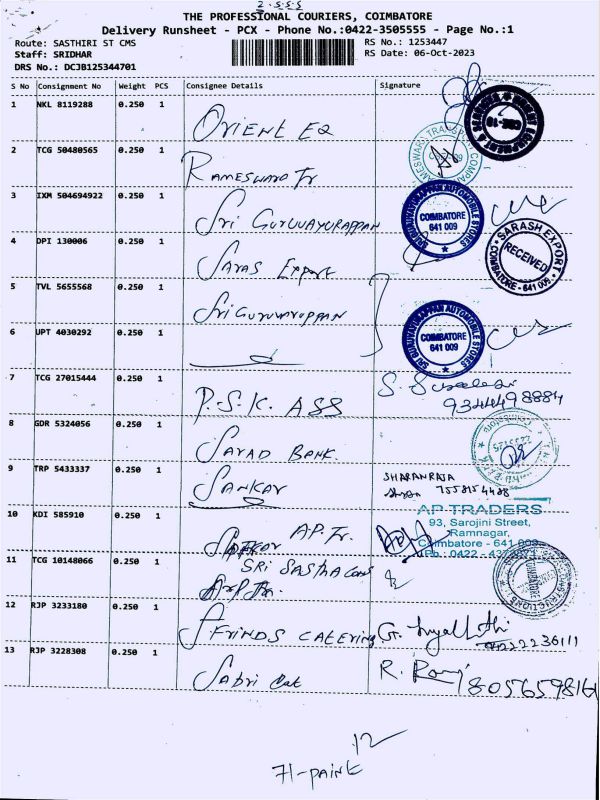 2-555
THE PROFESSIONAL COURIERS, COIMBATORE
Delivery Runsheet - PCX - Phone No.:0422-3505555 - Page No.:1
Route: SASTHIRI ST CMS
RS No.: 1253447
Staff: SRIDHAR
RS Date: 06-Oct-2023
DRS No.: DCJB125344701
S No Consignment No Weight PCS Consignee Details Signature
1 NKL 8119288 0.250 1 ORIENT EQ
2 TCG 50480565 0.250 1 RAMESWARA Tr
3 IXM 504694922 0.250 1 Sri GURUVAYURAPPAN
SRI GURUVAYURAPPAN AUTOMOBILE STORES
COIMBATORE
641 009
SARASH EXPORT
RECEIVED
COIMBATORE - 641 009
4 DPI 130006 0.250 1 SARAS Export
5 TVL 5655568 0.250 1 Sri GURUVAYURAPPAN
SRI GURUVAYURAPPAN AUTOMOBILE STORES
COIMBATORE
641 009
6 UPT 4030292 0.250 1
7 TCG 27015444 0.250 1 P.S.K. ASS
9344498884
8 GDR 5324056 0.250 1 BANK.
9 TRP 5433337 0.250 1 SANKAR
SHARANRAJA
7558154488
10 KDI 585910 0.250 1 A.P. Tr.
AP TRADERS
93, Sarojini Street,
Ramnagar,
Coimbatore - 641 009
Ph : 0422 -
11 TCG 10148066 0.250 1 SRI SASTHA Cons
12 RJP 3233180 0.250 1 FRINDS CATERING
13 RJP 3228308 0.250 1 SABRI Cat
R.
12
71-PAINE